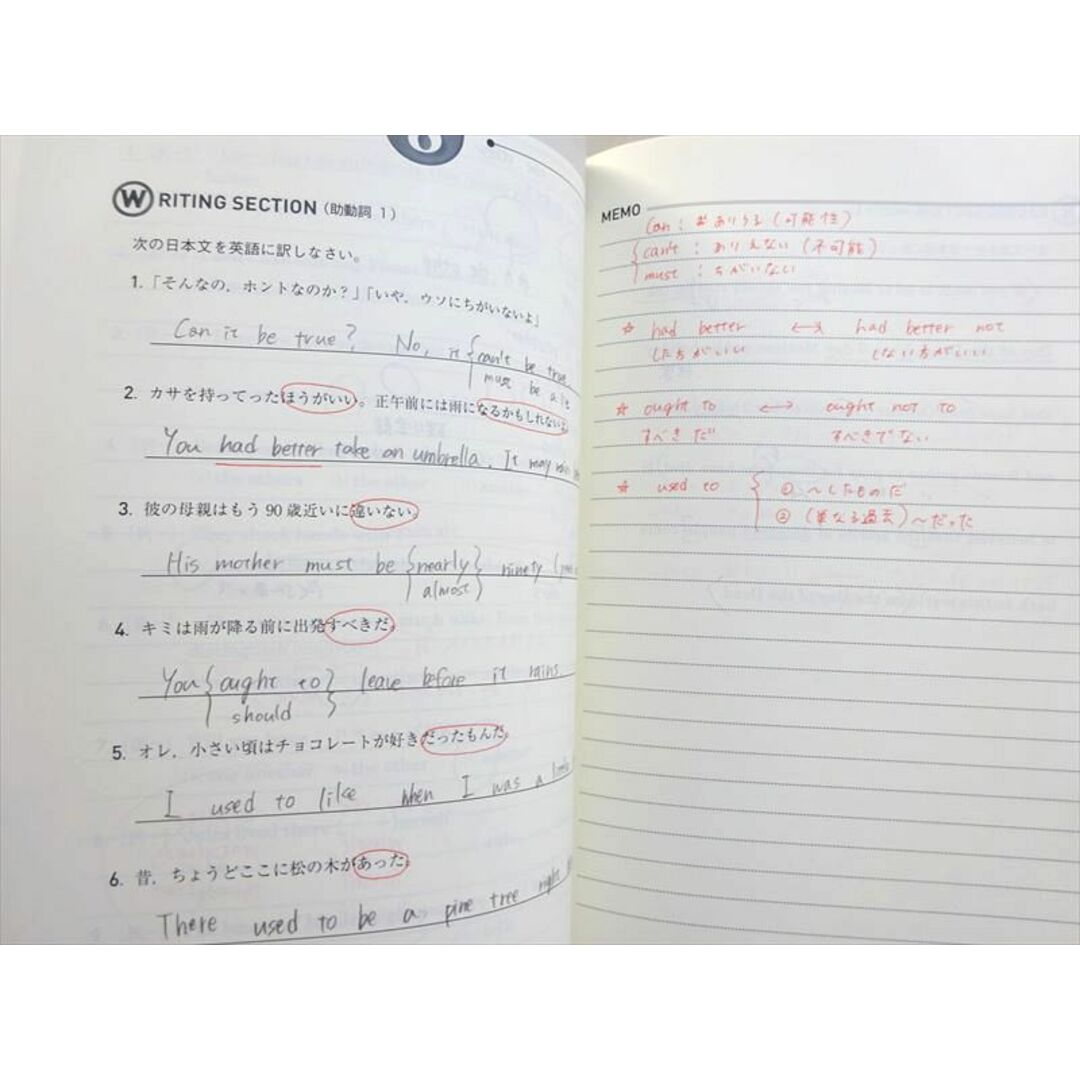 6
WRITING SECTION (助動詞 1)
次の日本文を英語に訳しなさい。
1.「そんなの，ホントなのか？」「いや，ウソにちがいないよ」
Can it be true? No, it { can't be true
must be a lie
2. カサを持ってったほうがいい。正午前には雨になるかもしれないよ
You had better take an umbrella. It may rain
3. 彼の母親はもう 90 歳近いに違いない。
His mother must be { nearly } ninety
almost
4. キミは雨が降る前に出発すべきだ。
You { ought to } leave before it rains
should
5. オレ，小さい頃はチョコレートが好きだったもんだ。
I used to like when I was a little
6. 昔，ちょうどここに松の木があった。
There used to be a pine tree right
MEMO
can : ありうる (可能性)
can't : ありえない (不可能)
must : ちがいない
☆ had better ↔ had better not
したほうがいい しない方がいい
☆ ought to ↔ ought not to
すべきだ すべきでない
☆ used to { ① ～したものだ
② (単なる過去) ～だった